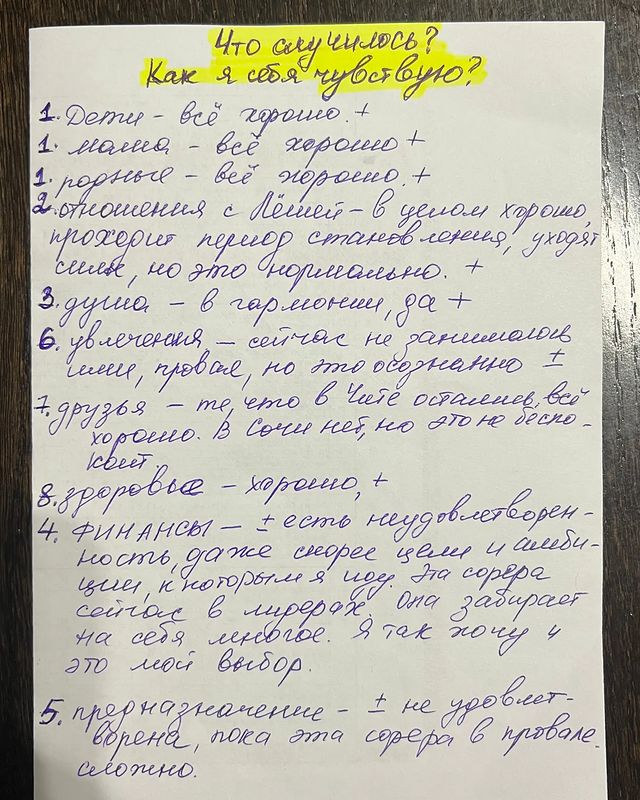 Что случилось?
Как я себя чувствую?
1. Дети - всё хорошо. +
1. мама - всё хорошо +
1. родные - всё хорошо. +
2. отношения с Лёшей - в целом хорошо,
проходит период становления, уходят
силы, но это нормально. +
3. душа - в гармонии, да +
6. увлечения - сейчас не занималась
ими, провал, но это осознанно ±
7. друзья - те, что в Чите остались, всё
хорошо. В Сочи нет, но это не беспо-
коит
8. здоровье - хорошо, +
4. ФИНАНСЫ - ± есть неудовлетворен-
ность, даже скорее цели и амби-
ции, к которым я иду. Эта сфера
сейчас в лидерах. Она забирает
на себя многое. Я так хочу и
это мой выбор.
5. предназначение - ± не удовлет-
ворена, пока эта сфера в провале.
сложно.